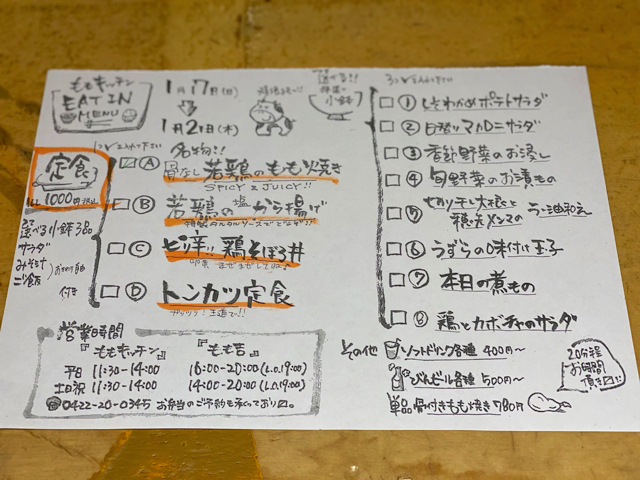 ももキッチン
EAT IN
MENU
1月17日(日)
1月21日(木)
選べる!!
小鉢
1つえらんで下さい
名物!!
定食
1000円 税込
選べる小鉢3品
サラダ
みそ汁
ご飯
おかわり自由
付き
Ⓐ 骨なし 若鶏のもも焼き
SPICY & JUICY!!
Ⓑ 若鶏の塩から揚げ
特製タルタルソースでどうぞ
Ⓒ ピリ辛!! 鶏そぼろ丼
Ⓓ トンカツ定食
ガッツリ!王道で!!
3つえらんで下さい
① じゃこわかめポテトサラダ
② 日替りマカロニサラダ
③ 季節野菜のお浸し
④ 旬野菜のお漬もの
⑤ 切り干し大根と
穂先メンマのラー油和え
⑥ うずらの味付け玉子
⑦ 本日の煮もの
⑧ 鶏とカボチャのサラダ
営業時間
『ももキッチン』
平日 11:30-14:00
土日祝 11:30-14:00
『もも吉』
16:00-20:00(L.O.19:00)
14:00-20:00(L.O.19:00)
☎0422-20-0345 お弁当のご予約も承っております。
その他
ソフトドリンク各種 400円〜
びんビール各種 500円〜
単品 骨付きもも焼き 780円
20分程
お時間
頂きます